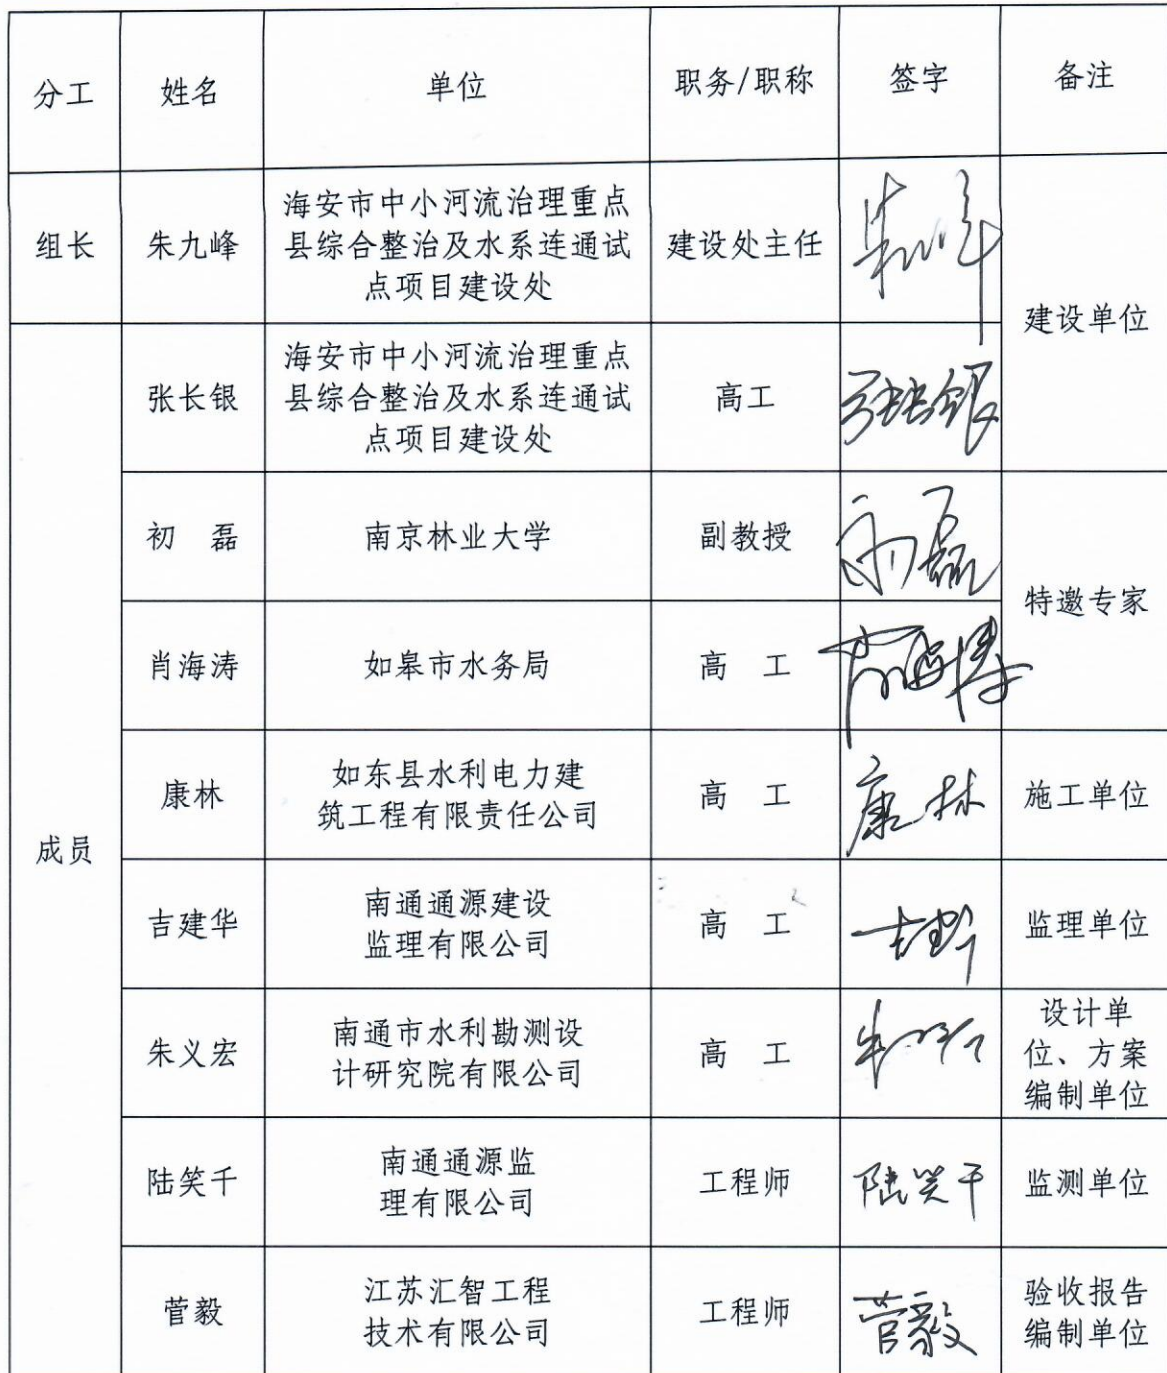 分工 姓名 单位 职务/职称 签字 备注
组长 朱九峰 海安市中小河流治理重点
县综合整治及水系连通试
点项目建设处 建设处主任
建设单位
张长银 海安市中小河流治理重点
县综合整治及水系连通试
点项目建设处 高工 张长银
初 磊 南京林业大学 副教授 初磊
特邀专家
肖海涛 如皋市水务局 高 工 肖海涛
成员
康林 如东县水利电力建
筑工程有限责任公司 高 工 康林 施工单位
吉建华 南通通源建设
监理有限公司 高 工 吉建华 监理单位
朱义宏 南通市水利勘测设
计研究院有限公司 高 工 设计单
位、方案
编制单位
陆笑千 南通通源监
理有限公司 工程师 陆笑千 监测单位
菅毅 江苏汇智工程
技术有限公司 工程师 菅毅 验收报告
编制单位